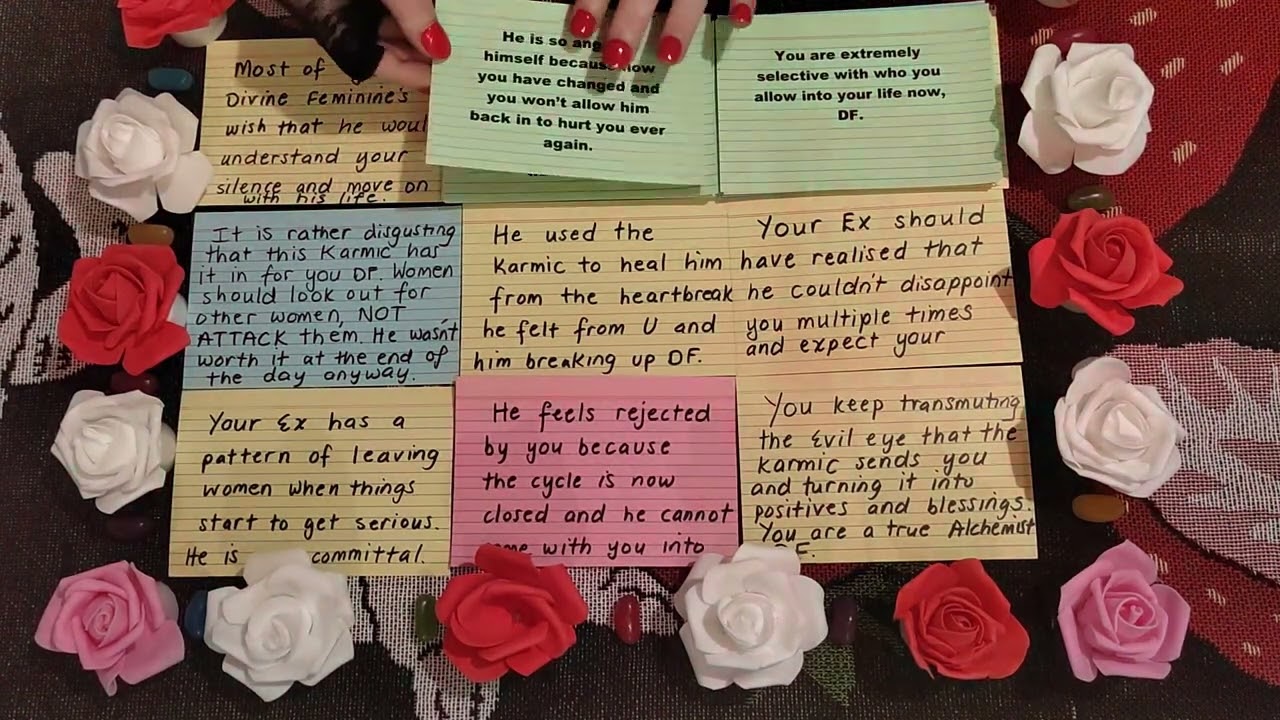 Most of
Divine Feminine's
wish that he
understand your
silence and move on
with his life.
He is so
himself because
you have changed and
you won't allow him
back in to hurt you ever
again.
You are extremely
selective with who you
allow into your life now,
DF.
It is rather disgusting
that this Karmic has
it in for you DF. Women
should look out for
other women, NOT
ATTACK them. He wasn't
worth it at the end of
the day anyway.
He used the
Karmic to heal him
from the heartbreak
he felt from U and
him breaking up DF.
Your Ex should
have realised that
he couldn't disappoint
you multiple times
and expect your
Your Ex has a
pattern of leaving
women when things
start to get serious.
He is committal.
He feels rejected
by you because
the cycle is now
closed and he cannot
with you into
You keep transmuting
the Evil eye that the
Karmic sends you
and turning it into
positives and blessings.
You are a true Alchemist
DF.